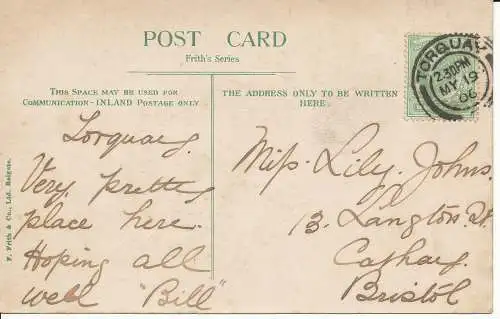 POST CARD
Frith's Series
THIS SPACE MAY BE USED FOR
COMMUNICATION - INLAND POSTAGE ONLY
THE ADDRESS ONLY TO BE WRITTEN
HERE.
TORQUAY
2.30PM
MY 19
06
Torquay.
Very pretty
place here.
Hoping all
well "Bill"
Miss Lily. Johns.
13. Langton. St
Cathay.
Bristol
F. Frith & Co., Ltd. Reigate.